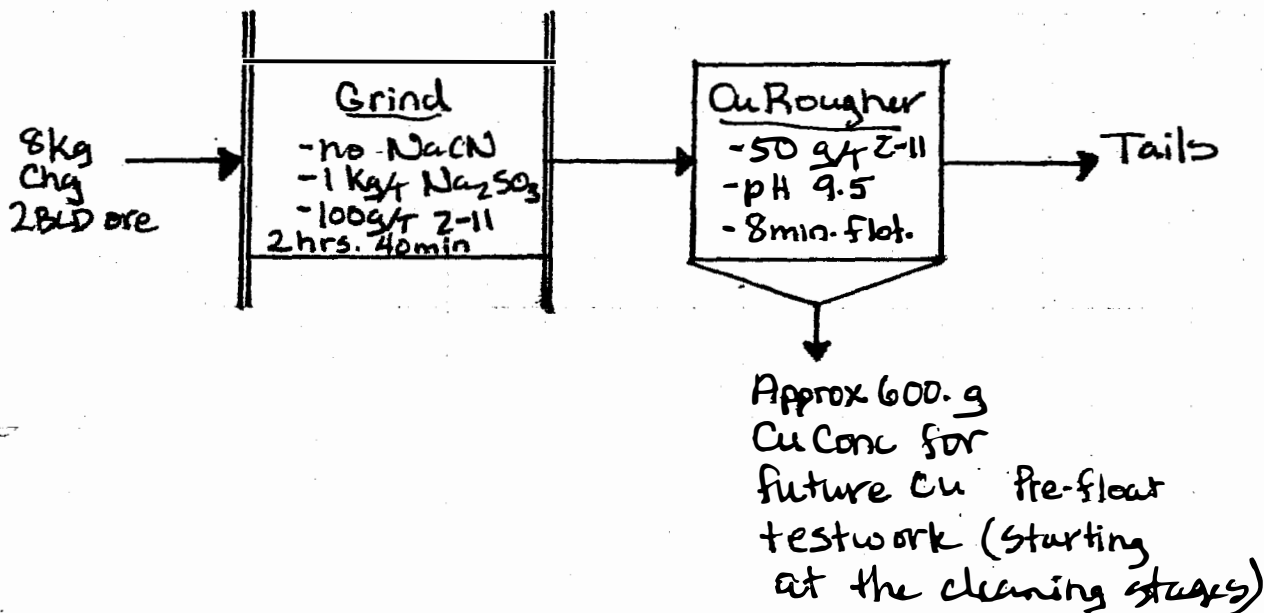 8Kg
Chg
2BLD ore
Grind
-no NaCN
-1 Kg/T Na₂SO₃
-100g/T Z-11
2 hrs. 40min
Cu Rougher
-50 g/T Z-11
-pH 9.5
-8min. flot.
Tails
Approx 600. g
Cu Conc for
future Cu Pre-float
testwork (starting
at the cleaning stages)